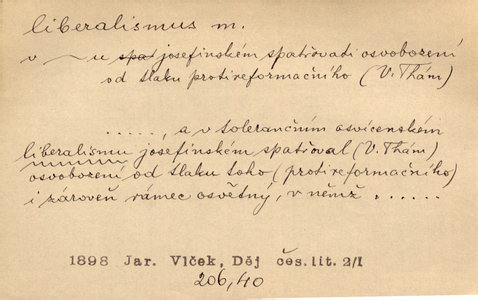 liberalismus m.
v ~u spat josefinském spatřovati osvobození
od tlaku protireformačního (V. Thám)
....., a v tolerančním osvícenském
liberalismu josefinském spatřoval (V. Thám)
osvobození od tlaku toho (protireformačního)
i zároveň rámec osvětný, v němž ......
1898 Jar. Vlček, Děj čes. lit. 2/I
206,40